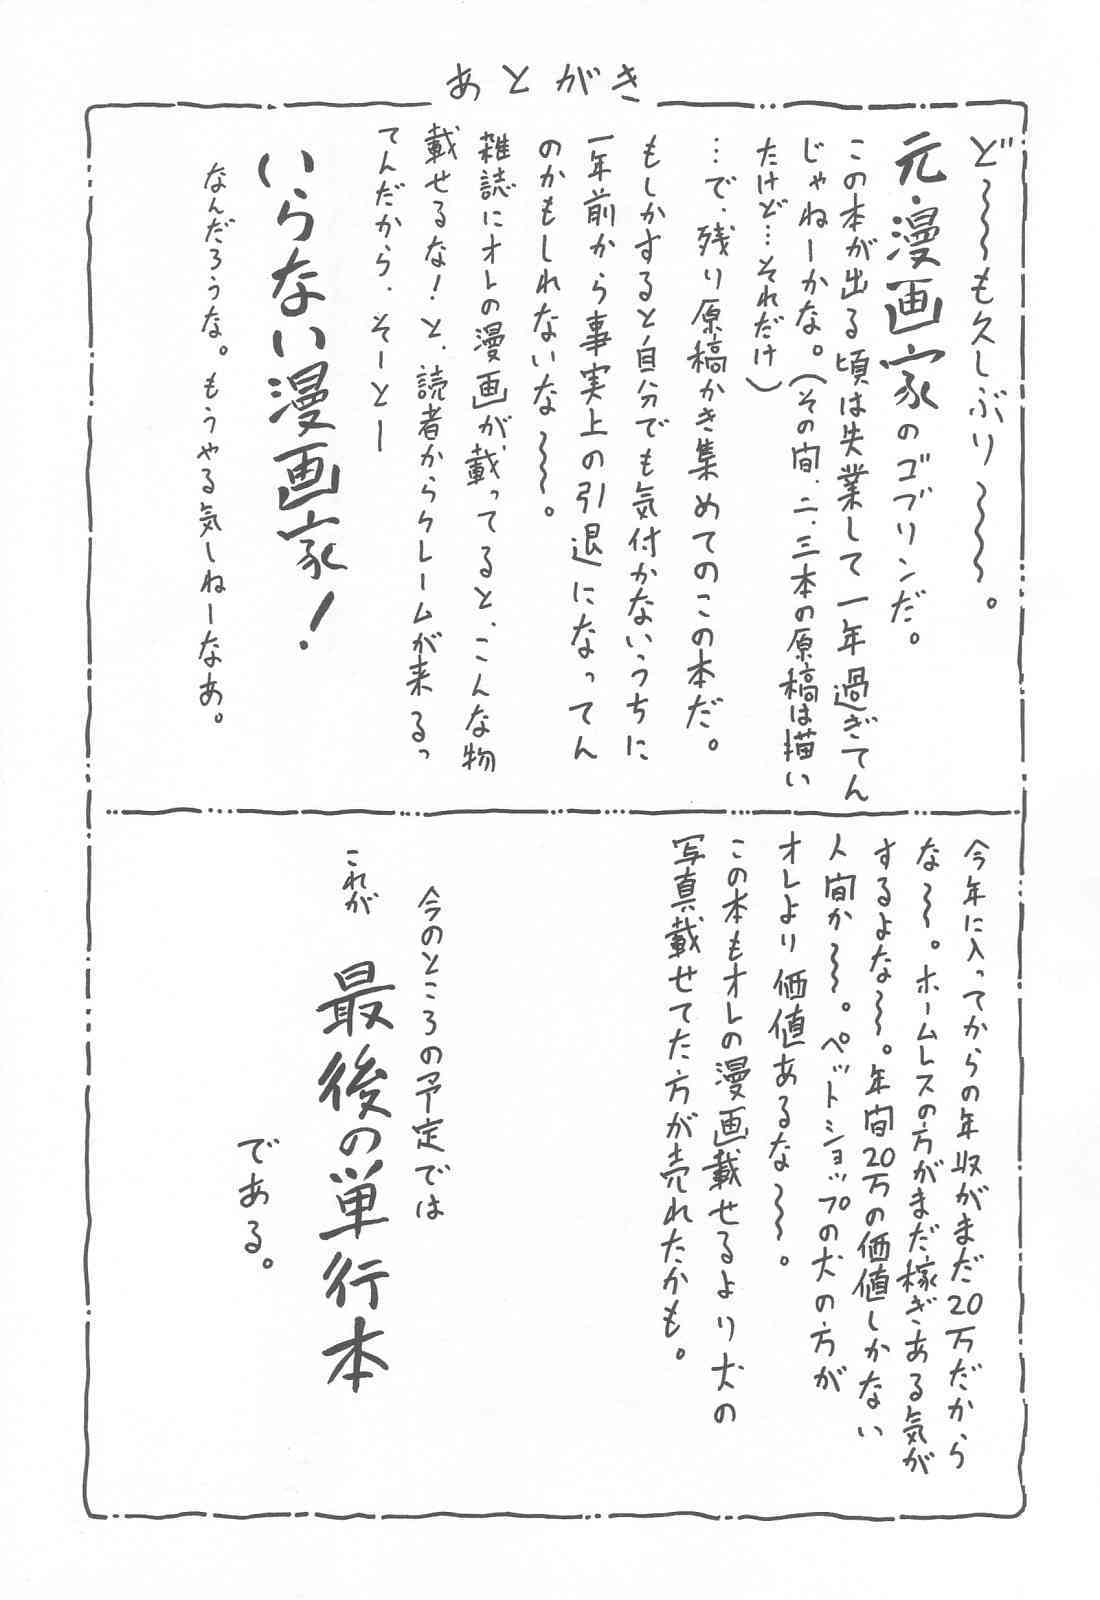 あとがき
ど〜〜〜も久しぶり〜〜〜。
元・漫画家のゴブリンだ。
この本が出る頃は失業して一年過ぎてん
じゃねーかな。（その間、二、三本の原稿は描い
たけど…それだけ）
…で、残り原稿かき集めてのこの本だ。
もしかすると自分でも気付かないうちに
一年前から事実上の引退になってん
のかもしれないな〜〜。
雑誌にオレの漫画が、載ってると、こんな物
載せるな！と、読者からクレームが来るっ
てんだから、そーとー
いらない漫画家！
なんだろうな。もうやる気しねーなあ。
今年に入ってからの年収がまだ20万だから
な〜〜。ホームレスの方がまだ稼ぎある気が
するよな〜〜。年間20万の価値しかない
人間か〜〜。ペットショップの犬の方が
オレより価値あるな〜〜。
この本もオレの漫画載せるより犬の
写真載せてた方が売れたかも。
今のところの予定では
これが 最後の単行本
である。